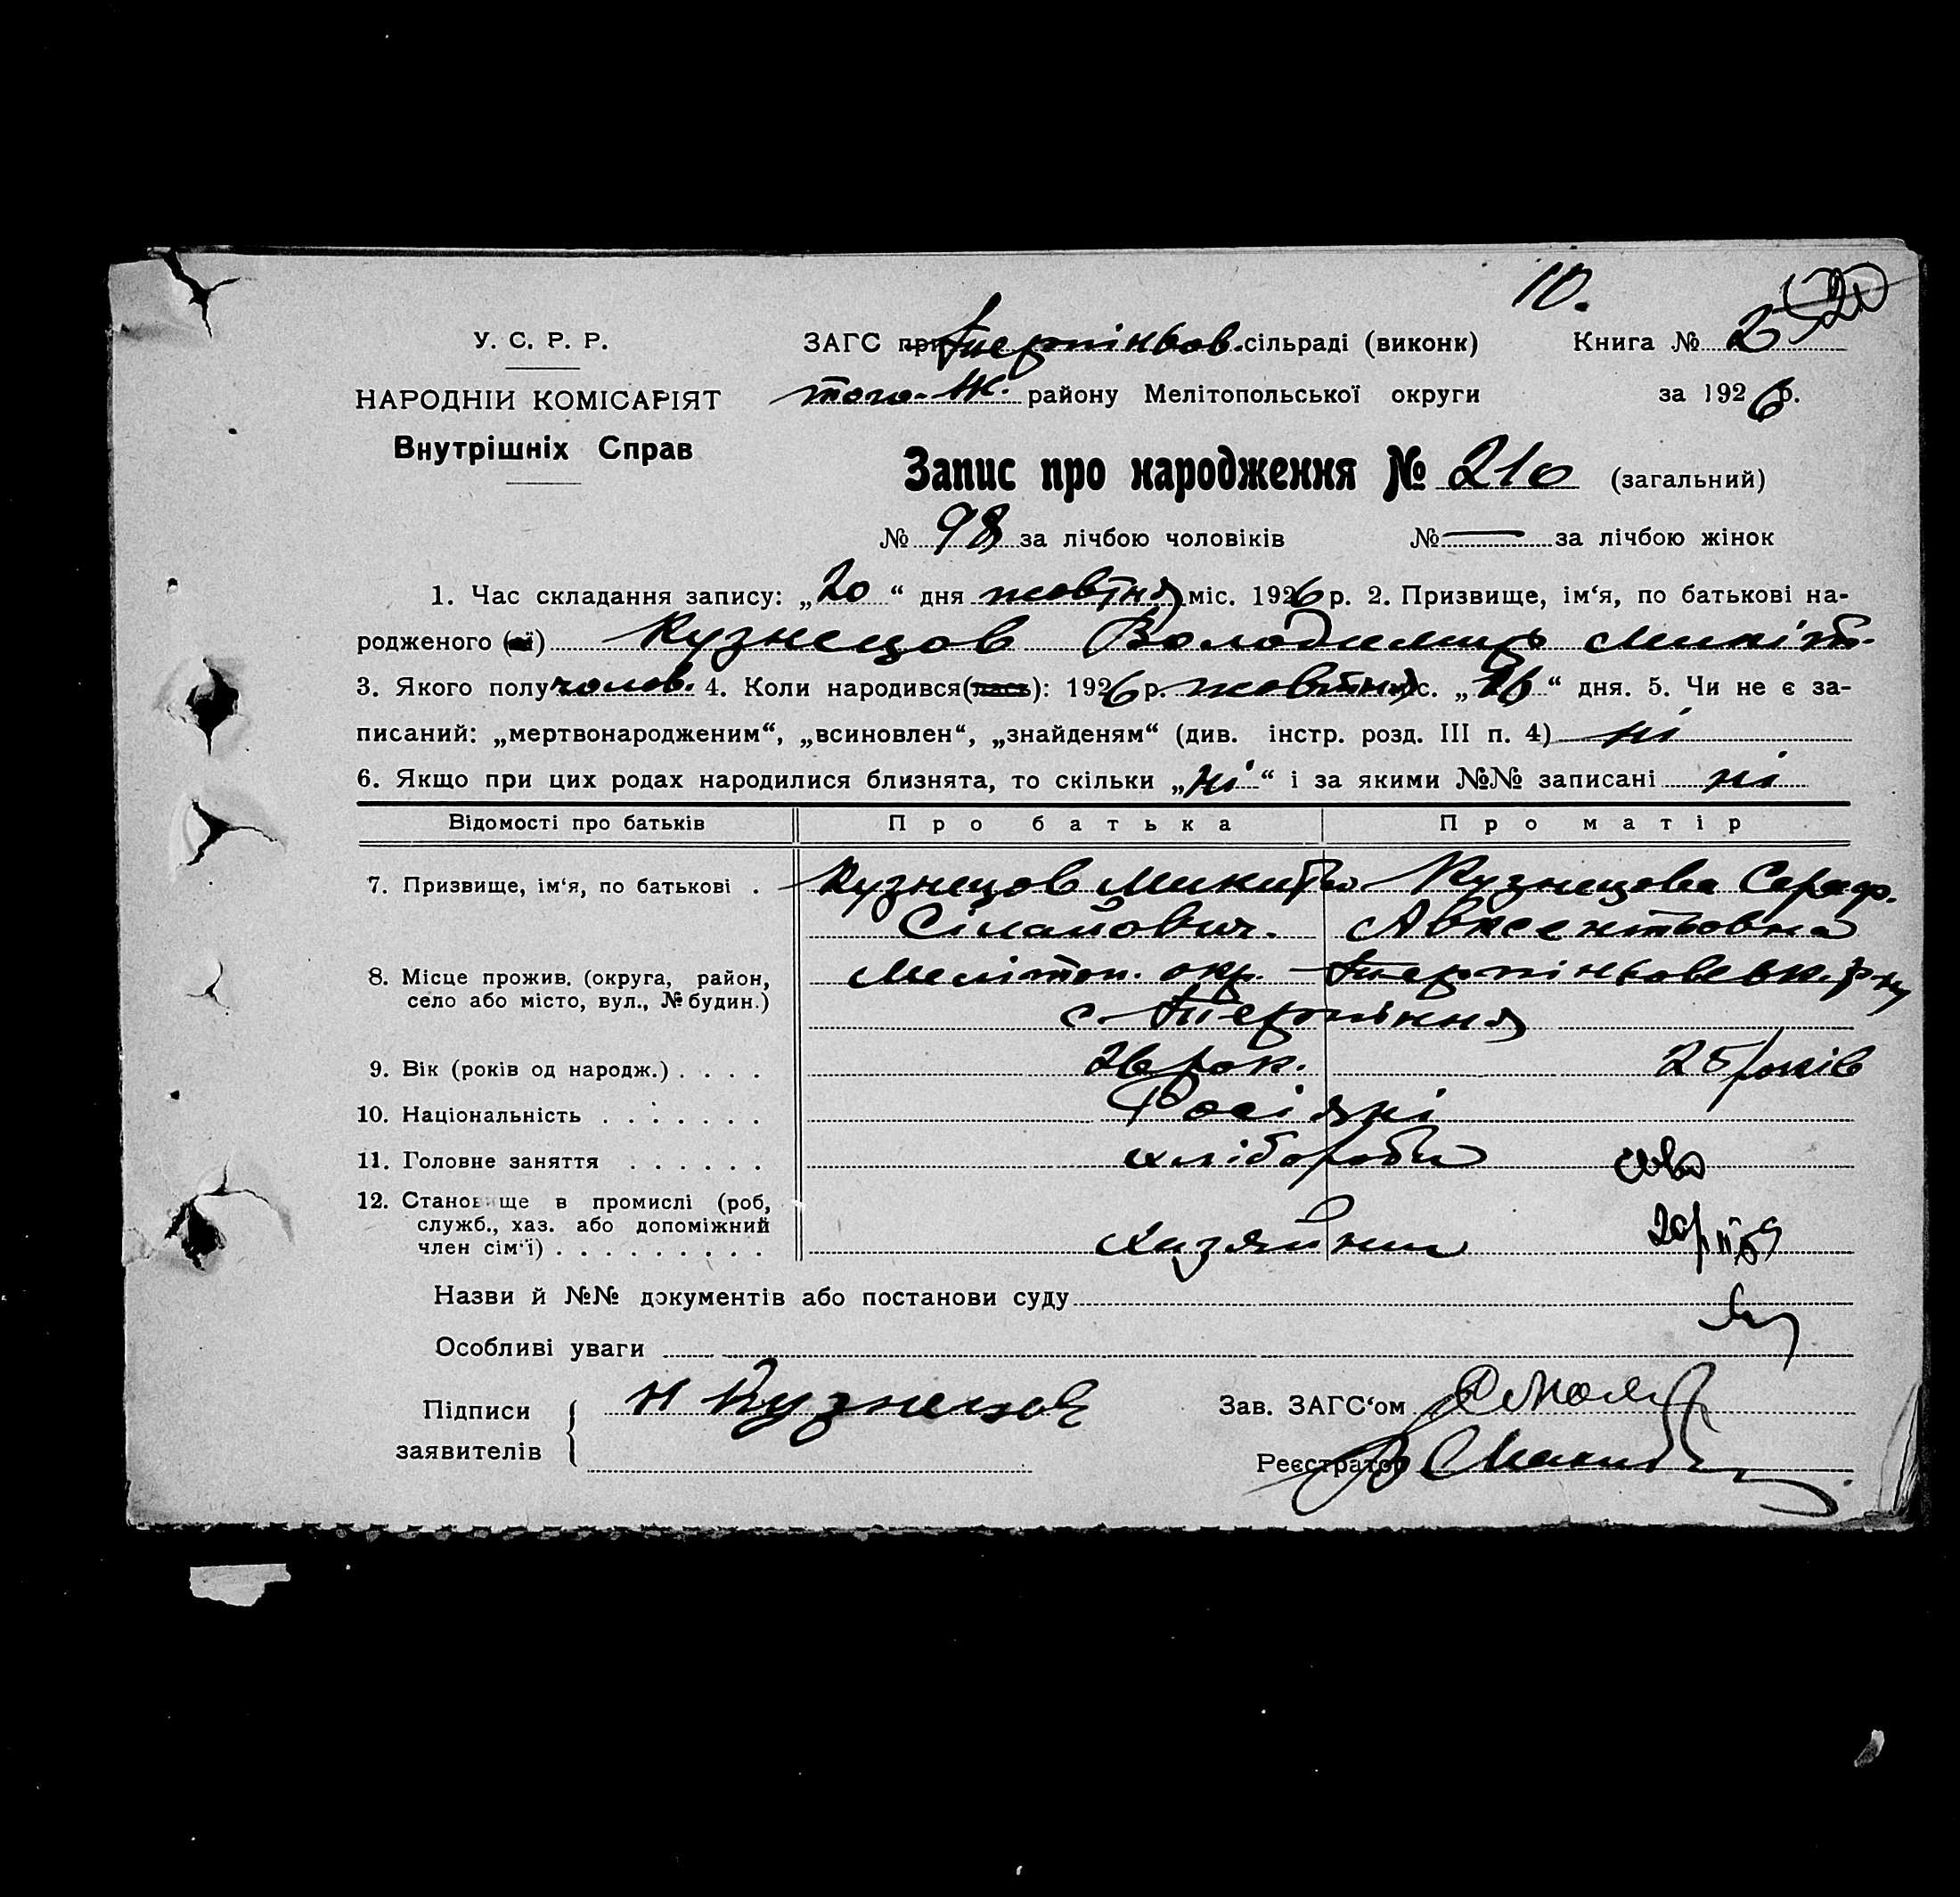 10.
У. С. Р. Р.
НАРОДНІЙ КОМІСАРІЯТ
Внутрішніх Справ
ЗАГС при Терпіньєв. сільраді (виконк) Книга № 2
того-ж. району Мелітопольської округи за 1926 р.
Запис про народження № 210 (загальний)
№ 98 за лічбою чоловіків № — за лічбою жінок
1. Час складання запису: „20“ дня жовтня міс. 1926 р. 2. Призвище, ім‘я, по батькові на-
родженого (ої) Кузнецов Володимир Микіт.
3. Якого полу чолов. 4. Коли народився(лась): 1926 р. жовтня с. „16“ дня. 5. Чи не є за-
писаний: „мертвонародженим“, „всиновлен“, „знайденям“ (див. інстр. розд. III п. 4) ні
6. Якщо при цих родах народилися близнята, то скільки „ні“ і за якими №№ записані ні
Відомості про батьків Про батька Про матір
7. Призвище, ім‘я, по батькові . Кузнецов Микита Кузнецова Сераф.
Сілайович. Авксентьовна
8. Місце прожив. (округа, район, Меліпоп. окр. Терпіньєвск. р-ну
село або місто, вул., № будин.) с. Терпіння
9. Вік (років од народж.) . . . . 26 рок. 25 років
10. Національність . . . . . . . Росіяні
11. Головне заняття . . . . . . хлібороби
12. Становище в промислі (роб,
служб., хаз. або допоміжний
член сім‘ї) . . . . . . . . . Хазяйни
Назви й №№ документів або постанови суду
Особливі уваги
Підписи Н Кузнецов Зав. ЗАГС‘ом
заявителів Реєстратор